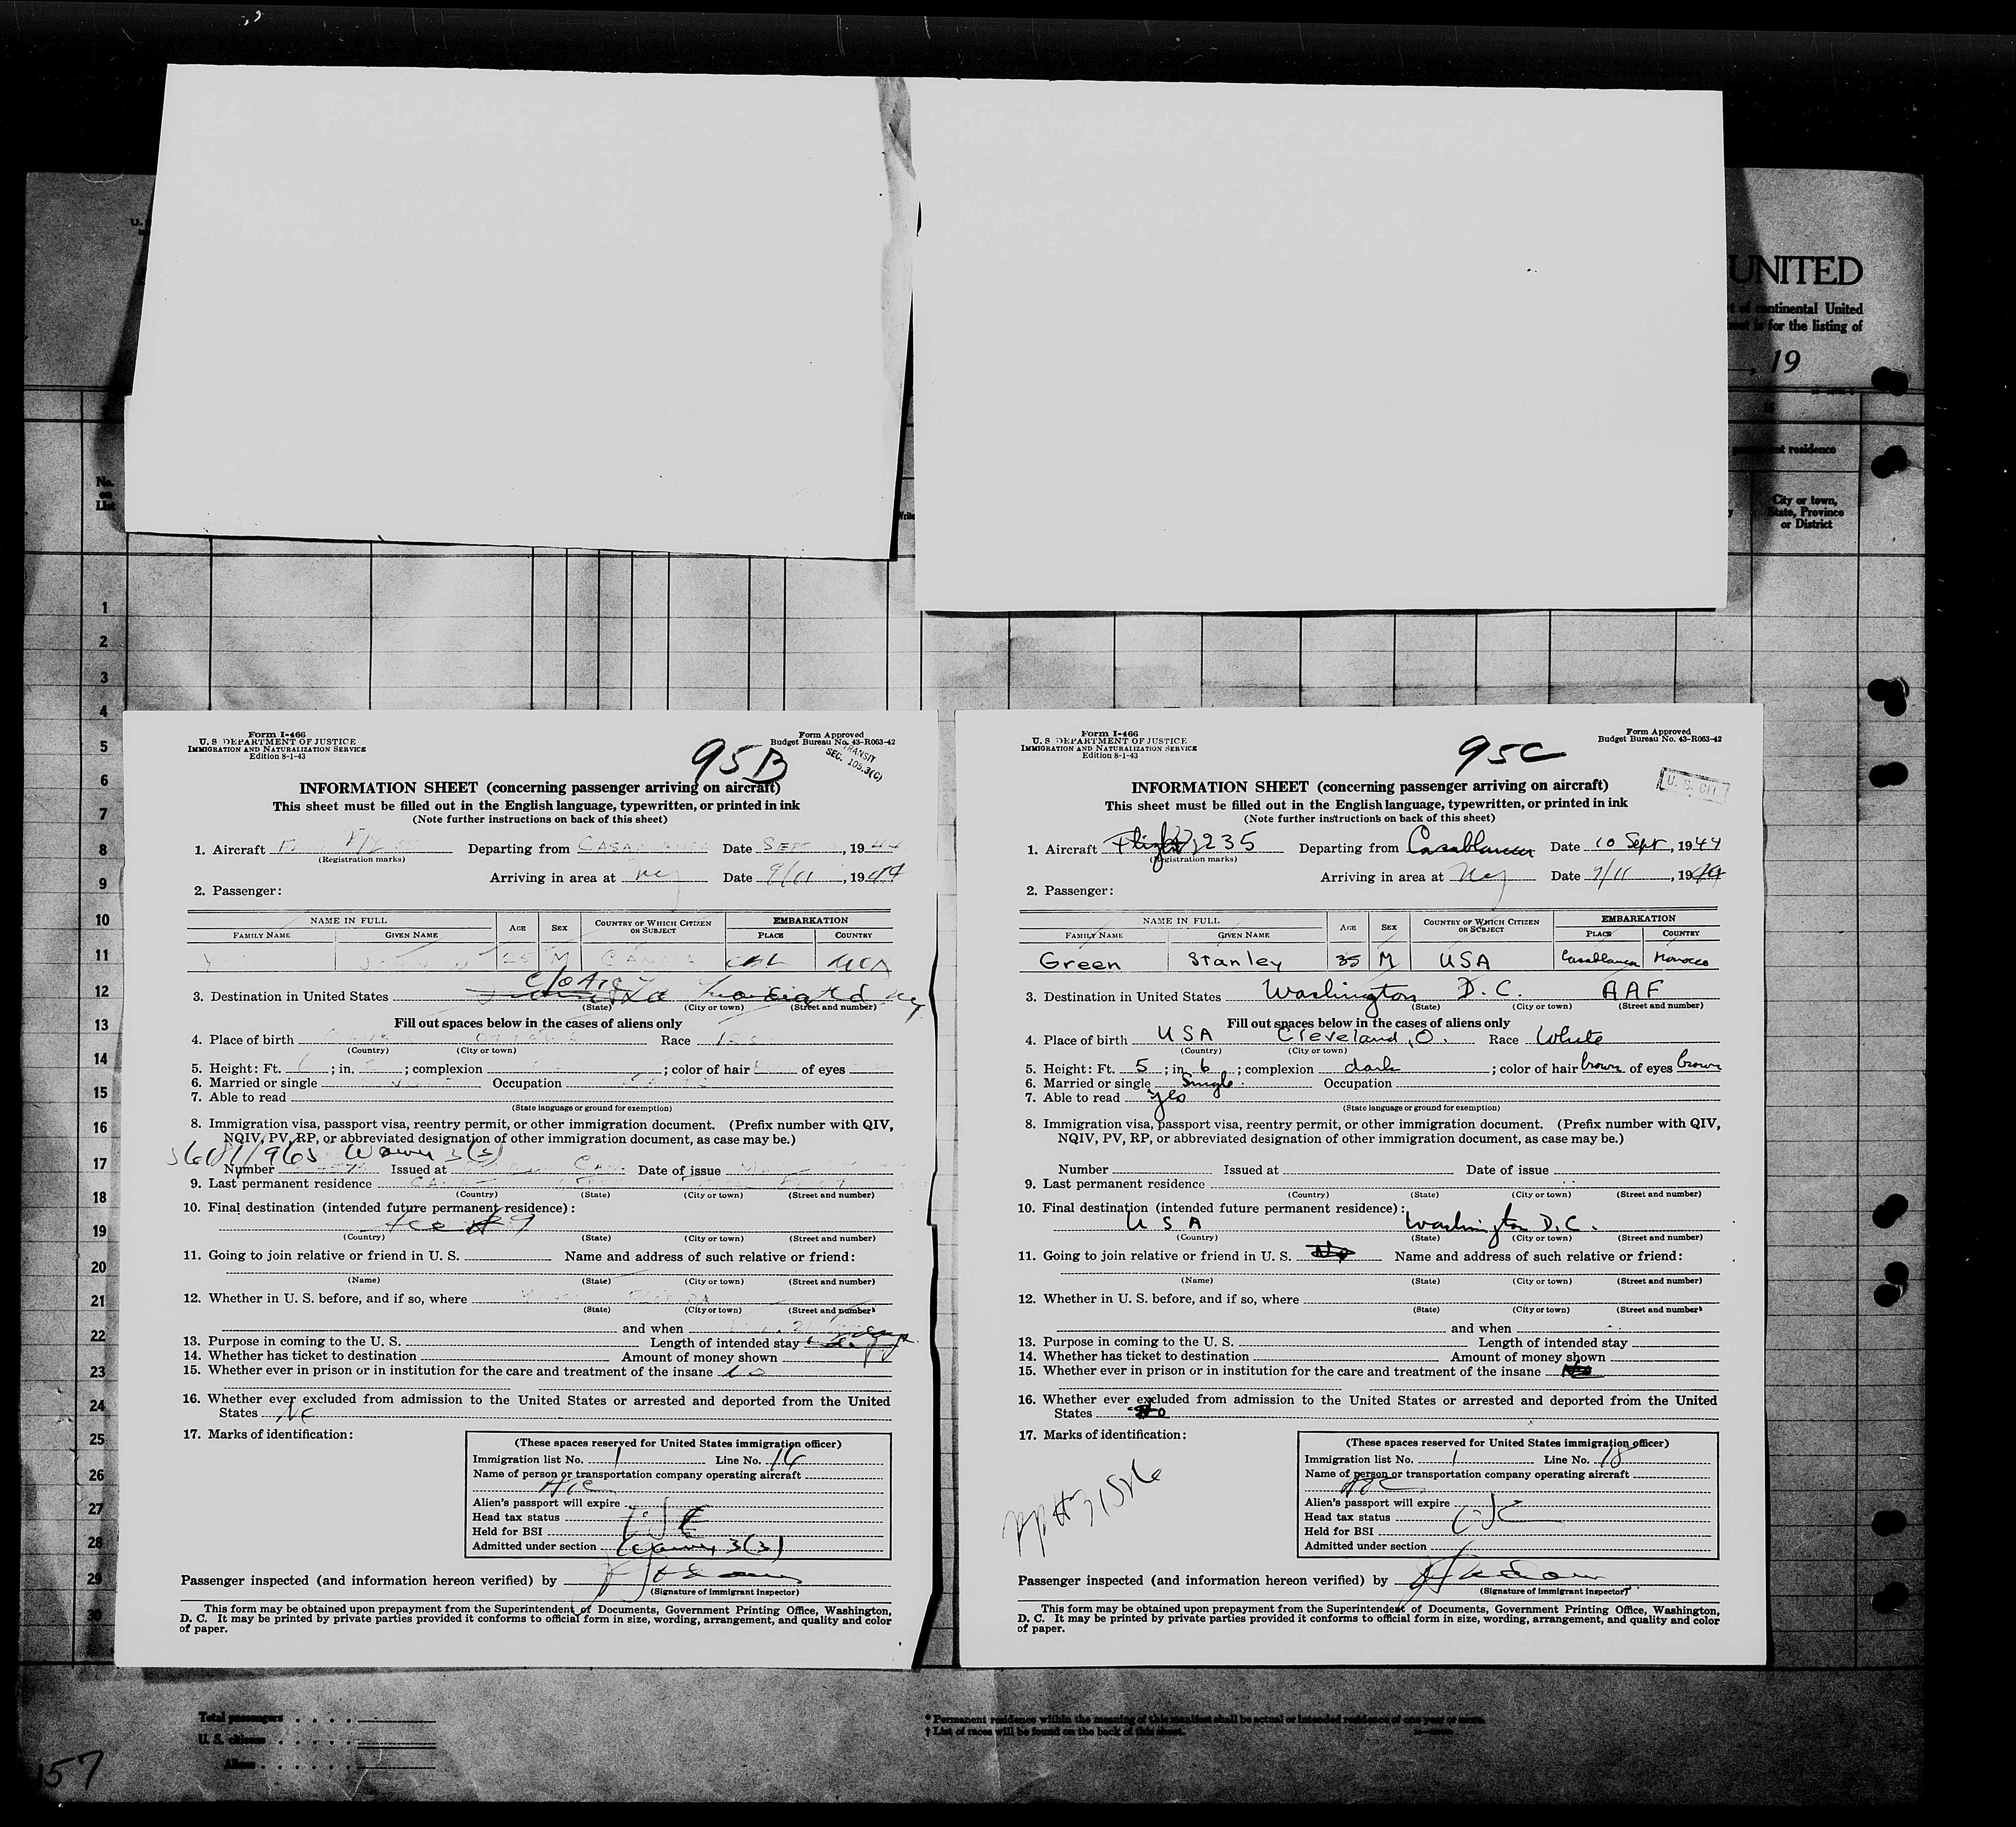 UNITED
of continental United
is for the listing of
, 19
residence
No.
on
List
City or town,
State, Province
or District
1
2
3
4
5
6
7
8
9
10
11
12
13
14
15
16
17
18
19
20
21
22
23
24
25
26
27
28
29
30
Form I-466
U. S. DEPARTMENT OF JUSTICE
IMMIGRATION AND NATURALIZATION SERVICE
Edition 8-1-43
95B
Form Approved
Budget Bureau No. 43-R063-42
TRANSIT
SEC. 105.3(C)
INFORMATION SHEET (concerning passenger arriving on aircraft)
This sheet must be filled out in the English language, typewritten, or printed in ink
(Note further instructions on back of this sheet)
1. Aircraft Departing from CASA Date SEPT , 1944
(Registration marks)
Arriving in area at NY Date 9/11, 1944
2. Passenger:
NAME IN FULL AGE SEX COUNTRY OF WHICH CITIZEN OR SUBJECT EMBARKATION
FAMILY NAME GIVEN NAME PLACE COUNTRY
25 M
3. Destination in United States
(State) (City or town) (Street and number)
Fill out spaces below in the cases of aliens only
4. Place of birth Race
(Country) (City or town)
5. Height: Ft. ; in. ; complexion ; color of hair of eyes
6. Married or single Occupation
7. Able to read
(State language or ground for exemption)
8. Immigration visa, passport visa, reentry permit, or other immigration document. (Prefix number with QIV,
NQIV, PV, RP, or abbreviated designation of other immigration document, as case may be.)
3(3)
Number Issued at Date of issue
9. Last permanent residence
(Country) (State) (City or town) (Street and number)
10. Final destination (intended future permanent residence):
(Country) (State) (City or town) (Street and number)
11. Going to join relative or friend in U. S. Name and address of such relative or friend:
(Name) (State) (City or town) (Street and number)
12. Whether in U. S. before, and if so, where
(State) (City or town) (Street and number)
and when
13. Purpose in coming to the U. S. Length of intended stay
14. Whether has ticket to destination Amount of money shown
15. Whether ever in prison or in institution for the care and treatment of the insane
16. Whether ever excluded from admission to the United States or arrested and deported from the United
States
17. Marks of identification:
(These spaces reserved for United States immigration officer)
Immigration list No. 1 Line No. 14
Name of person or transportation company operating aircraft
Alien's passport will expire
Head tax status
Held for BSI
Admitted under section 3(3)
Passenger inspected (and information hereon verified) by
(Signature of immigrant inspector)
This form may be obtained upon prepayment from the Superintendent of Documents, Government Printing Office, Washington,
D. C. It may be printed by private parties provided it conforms to official form in size, wording, arrangement, and quality and color
of paper.
Form I-466
U. S. DEPARTMENT OF JUSTICE
IMMIGRATION AND NATURALIZATION SERVICE
Edition 8-1-43
95C
Form Approved
Budget Bureau No. 43-R063-42
U. S. CIT
INFORMATION SHEET (concerning passenger arriving on aircraft)
This sheet must be filled out in the English language, typewritten, or printed in ink
(Note further instructions on back of this sheet)
1. Aircraft Flight 235 Departing from Casablanca Date 10 Sept, 1944
(Registration marks)
Arriving in area at NY Date 9/11, 1944
2. Passenger:
NAME IN FULL AGE SEX COUNTRY OF WHICH CITIZEN OR SUBJECT EMBARKATION
FAMILY NAME GIVEN NAME PLACE COUNTRY
Green Stanley 35 M USA Casablanca Morocco
3. Destination in United States Washington D.C. AAF
(State) (City or town) (Street and number)
Fill out spaces below in the cases of aliens only
4. Place of birth USA Cleveland, O. Race White
(Country) (City or town)
5. Height: Ft. 5; in. 6; complexion dark; color of hair brown of eyes brown
6. Married or single Single Occupation
7. Able to read yes
(State language or ground for exemption)
8. Immigration visa, passport visa, reentry permit, or other immigration document. (Prefix number with QIV,
NQIV, PV, RP, or abbreviated designation of other immigration document, as case may be.)
Number Issued at Date of issue
9. Last permanent residence
(Country) (State) (City or town) (Street and number)
10. Final destination (intended future permanent residence):
USA Washington D.C.
(Country) (State) (City or town) (Street and number)
11. Going to join relative or friend in U. S. No Name and address of such relative or friend:
(Name) (State) (City or town) (Street and number)
12. Whether in U. S. before, and if so, where
(State) (City or town) (Street and number)
and when
13. Purpose in coming to the U. S. Length of intended stay
14. Whether has ticket to destination Amount of money shown
15. Whether ever in prison or in institution for the care and treatment of the insane No
16. Whether ever excluded from admission to the United States or arrested and deported from the United
States No
17. Marks of identification:
(These spaces reserved for United States immigration officer)
Immigration list No. 1 Line No. 18
Name of person or transportation company operating aircraft
Alien's passport will expire
Head tax status
Held for BSI
Admitted under section
Passenger inspected (and information hereon verified) by
(Signature of immigrant inspector)
This form may be obtained upon prepayment from the Superintendent of Documents, Government Printing Office, Washington,
D. C. It may be printed by private parties provided it conforms to official form in size, wording, arrangement, and quality and color
of paper.
Total passengers
U. S. citizens
Aliens
* Permanent residence within the meaning of this manifest shall be actual or intended residence of one year or more.
† List of races will be found on the back of this sheet.
157